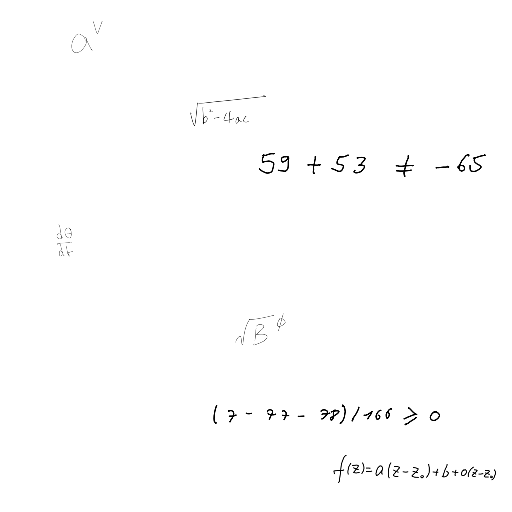 a^v
√(b²-4ac)
59 + 53 ≠ -65
dθ/dt
√B^ϕ
(7 - 77 - 78) / 166 ≥ 0
f(z)=a(z-z₀)+b+o(z-z₀)